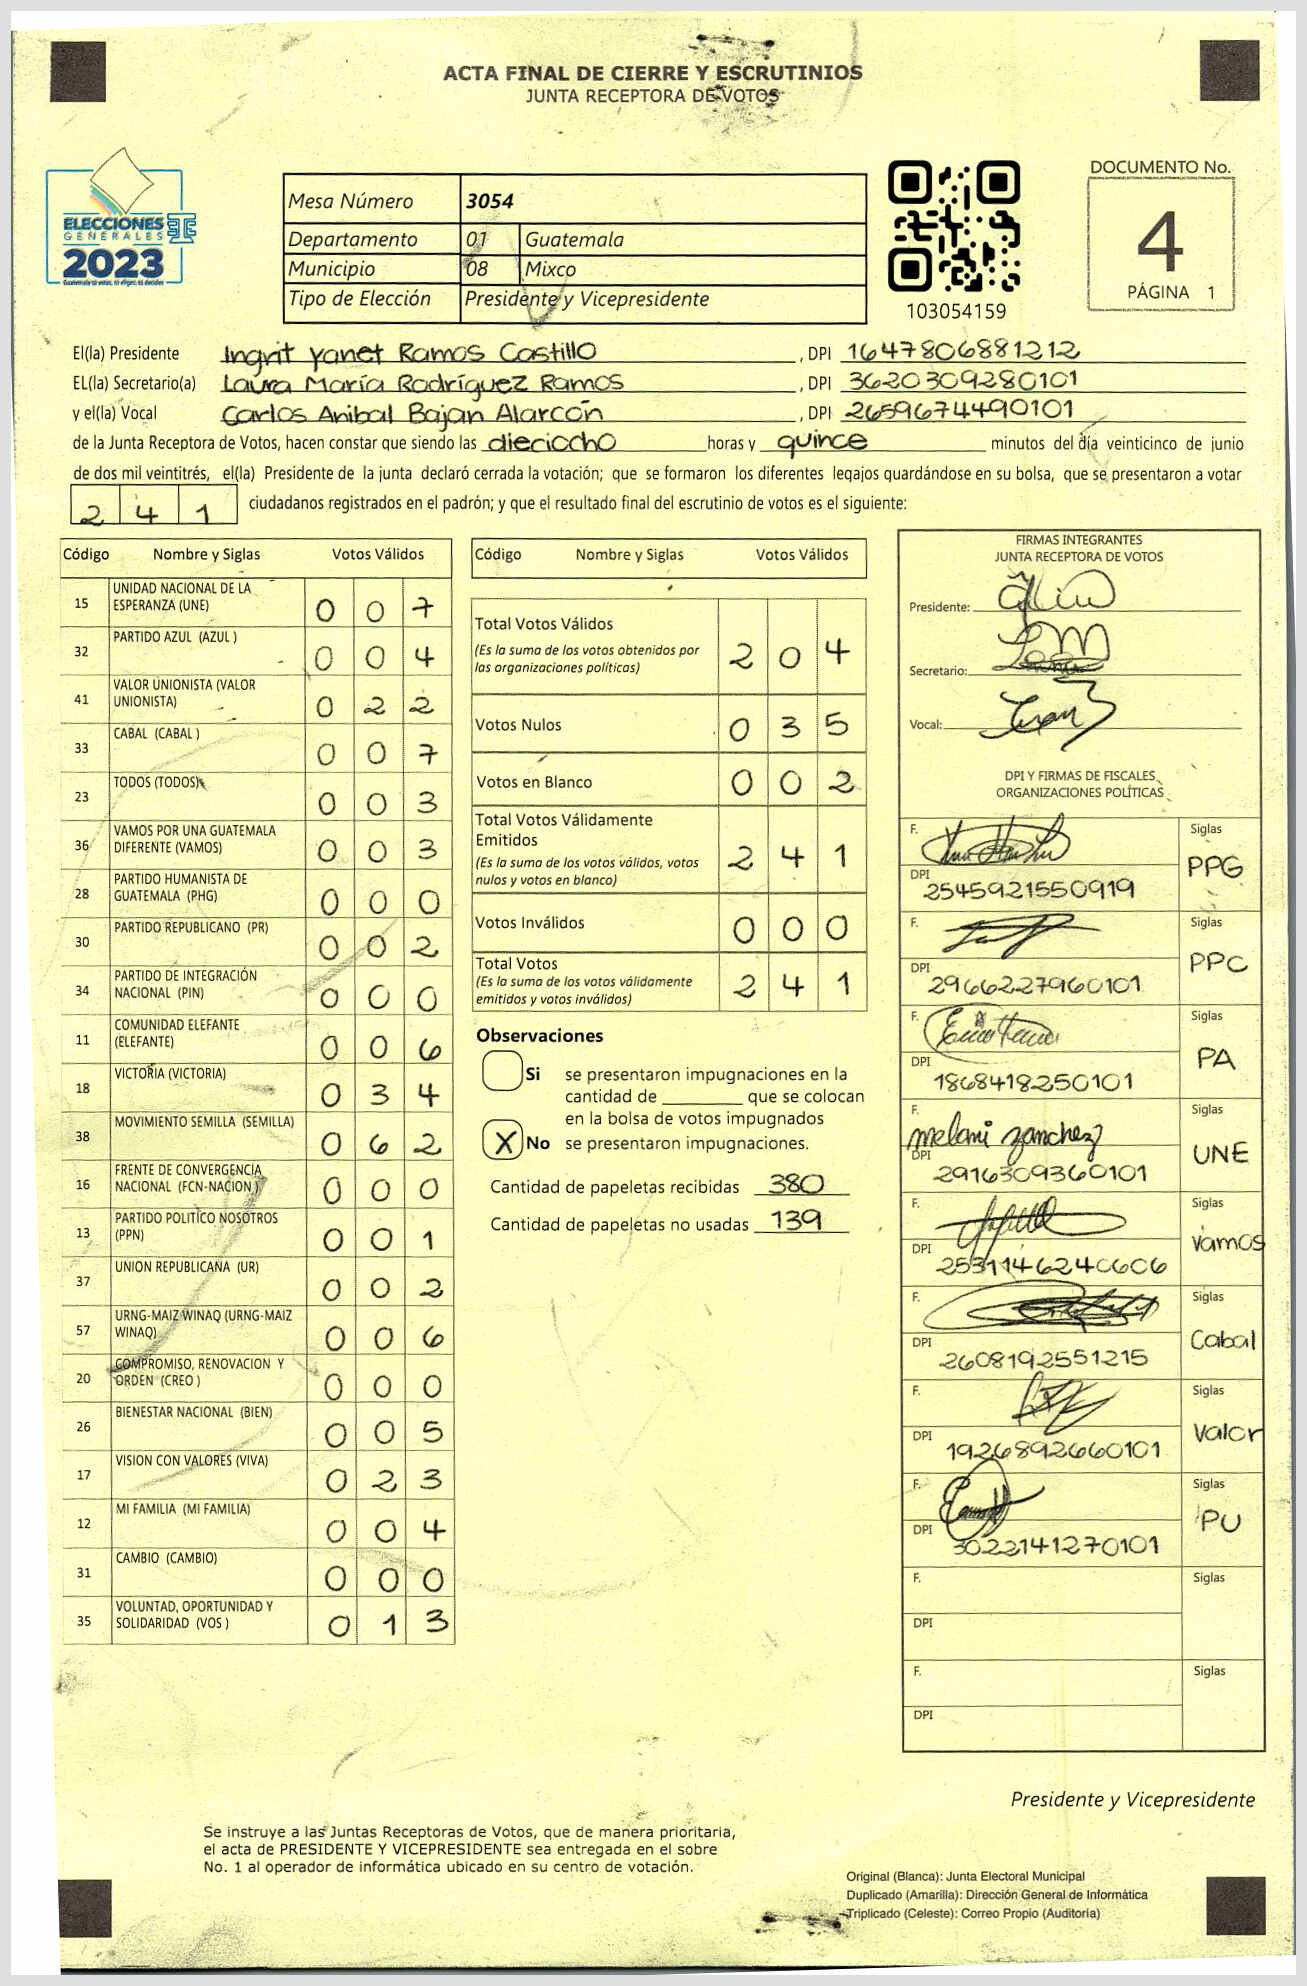 ACTA FINAL DE CIERRE Y ESCRUTINIOS
JUNTA RECEPTORA DE VOTOS
ELECCIONES
GENERALES
2023
Mesa Número 3054
Departamento 01 Guatemala
Municipio 08 Mixco
Tipo de Elección Presidente y Vicepresidente
103054159
DOCUMENTO No.
4
PÁGINA 1
El(la) Presidente Ingrit Yanet Ramos Castillo, DPI 1647806881212
EL(la) Secretario(a) Laura María Rodríguez Ramos, DPI 3620309280101
y el(la) Vocal Carlos Anibal Bajan Alarcón, DPI 2659674490101
de la Junta Receptora de Votos, hacen constar que siendo las dieciocho horas y quince minutos del día veinticinco de junio
de dos mil veintitrés, el(la) Presidente de la junta declaró cerrada la votación; que se formaron los diferentes legajos guardándose en su bolsa, que se presentaron a votar
2 4 1 ciudadanos registrados en el padrón; y que el resultado final del escrutinio de votos es el siguiente:
Código Nombre y Siglas Votos Válidos
15 UNIDAD NACIONAL DE LA
ESPERANZA (UNE) 0 0 7
32 PARTIDO AZUL (AZUL ) 0 0 4
41 VALOR UNIONISTA (VALOR
UNIONISTA) 0 2 2
33 CABAL (CABAL ) 0 0 7
23 TODOS (TODOS) 0 0 3
36 VAMOS POR UNA GUATEMALA
DIFERENTE (VAMOS) 0 0 3
28 PARTIDO HUMANISTA DE
GUATEMALA (PHG) 0 0 0
30 PARTIDO REPUBLICANO (PR) 0 0 2
34 PARTIDO DE INTEGRACIÓN
NACIONAL (PIN) 0 0 0
11 COMUNIDAD ELEFANTE
(ELEFANTE) 0 0 6
18 VICTORIA (VICTORIA) 0 3 4
38 MOVIMIENTO SEMILLA (SEMILLA) 0 6 2
16 FRENTE DE CONVERGENCIA
NACIONAL (FCN-NACION ) 0 0 0
13 PARTIDO POLITÍCO NOSOTROS
(PPN) 0 0 1
37 UNION REPUBLICANA (UR) 0 0 2
57 URNG-MAIZ WINAQ (URNG-MAIZ
WINAQ) 0 0 6
20 COMPROMISO, RENOVACION Y
ORDEN (CREO ) 0 0 0
26 BIENESTAR NACIONAL (BIEN) 0 0 5
17 VISION CON VALORES (VIVA) 0 2 3
12 MI FAMILIA (MI FAMILIA) 0 0 4
31 CAMBIO (CAMBIO) 0 0 0
35 VOLUNTAD, OPORTUNIDAD Y
SOLIDARIDAD (VOS ) 0 1 3
Código Nombre y Siglas Votos Válidos
Total Votos Válidos 2 0 4
(Es la suma de los votos obtenidos por
las organizaciones políticas)
Votos Nulos 0 3 5
Votos en Blanco 0 0 2
Total Votos Válidamente
Emitidos 2 4 1
(Es la suma de los votos válidos, votos
nulos y votos en blanco)
Votos Inválidos 0 0 0
Total Votos 2 4 1
(Es la suma de los votos válidamente
emitidos y votos inválidos)
Observaciones
Si se presentaron impugnaciones en la
cantidad de ________ que se colocan
en la bolsa de votos impugnados
X No se presentaron impugnaciones.
Cantidad de papeletas recibidas 380
Cantidad de papeletas no usadas 139
FIRMAS INTEGRANTES
JUNTA RECEPTORA DE VOTOS
Presidente:
Secretario:
Vocal:
DPI Y FIRMAS DE FISCALES
ORGANIZACIONES POLÍTICAS
F. Siglas
DPI 2545921550919 PPG
F. Siglas
DPI 2966227960101 PPC
F. Siglas
DPI 1868418250101 PA
F. melani zanchez Siglas
DPI 2916309360101 UNE
F. Siglas
DPI 2531146240606 Vamos
F. Siglas
DPI 2608192551215 Cabal
F. Siglas
DPI 1926892660101 Valor
F. Siglas
DPI 3022141270101 PU
F. Siglas
DPI
F. Siglas
DPI
Presidente y Vicepresidente
Se instruye a las Juntas Receptoras de Votos, que de manera prioritaria,
el acta de PRESIDENTE Y VICEPRESIDENTE sea entregada en el sobre
No. 1 al operador de informática ubicado en su centro de votación.
Original (Blanca): Junta Electoral Municipal
Duplicado (Amarilla): Dirección General de Informática
Triplicado (Celeste): Correo Propio (Auditoría)